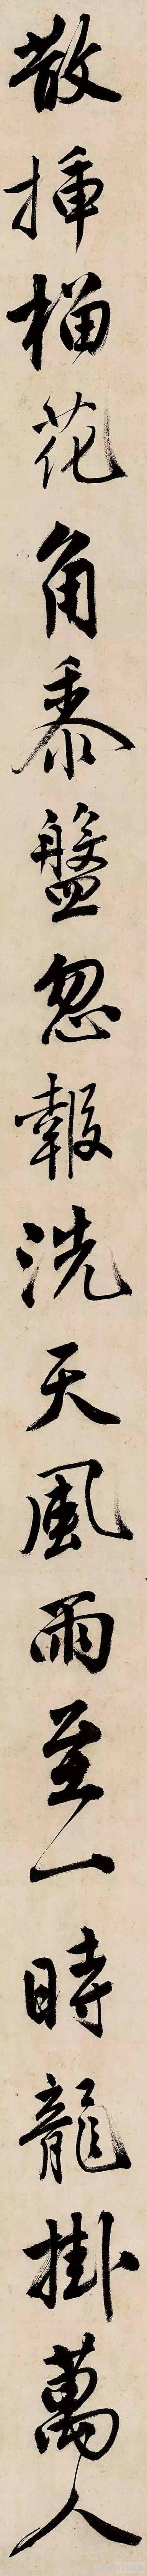 散挿榴花角黍盤忽報洗天風雨至一時龍掛萬人